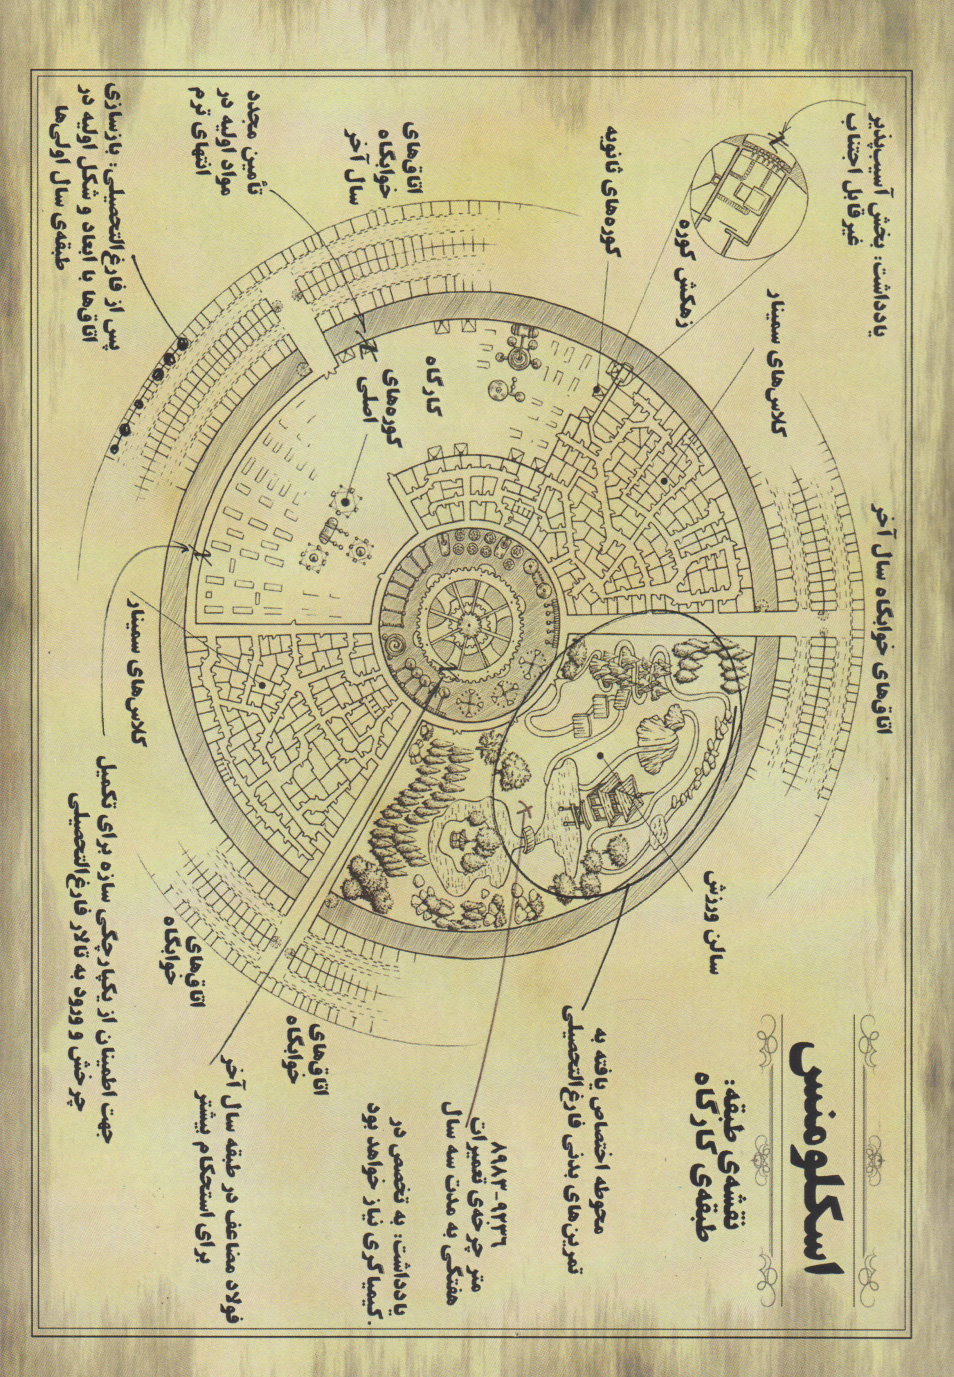 اسکلومنس
نقشه‌ی طبقه:
طبقه‌ی کارگاه
یادداشت: بخش آسیب‌پذیر
غیرقابل اجتناب
زهکش کوره
کوره‌های ثانویه
کلاس‌های سمینار
اتاق‌های خوابگاه سال آخر
اتاق‌های
خوابگاه
سال آخر
تأمین مجدد
مواد اولیه در
انتهای ترم
پس از فارغ‌التحصیلی: بازسازی
اتاق‌ها با ابعاد و شکل اولیه در
طبقه‌ی سال اولی‌ها
کارگاه
کوره‌های
اصلی
کلاس‌های سمینار
سالن ورزش
جهت اطمینان از یکپارچگی سازه برای تکمیل
چرخش و ورود به تالار فارغ‌التحصیلی
اتاق‌های
خوابگاه
اتاق‌های
خوابگاه
فولاد مضاعف در طبقه سال آخر
برای استحکام بیشتر
محوطه اختصاص یافته به
تمرین‌های بدنی فارغ‌التحصیلی
۸۹۸۳-۹۲۳۶
متر چرخه‌ی تعمیرات
هفتگی به مدت سه سال
یادداشت: به تخصص در
کیمیاگری نیاز خواهد بود.